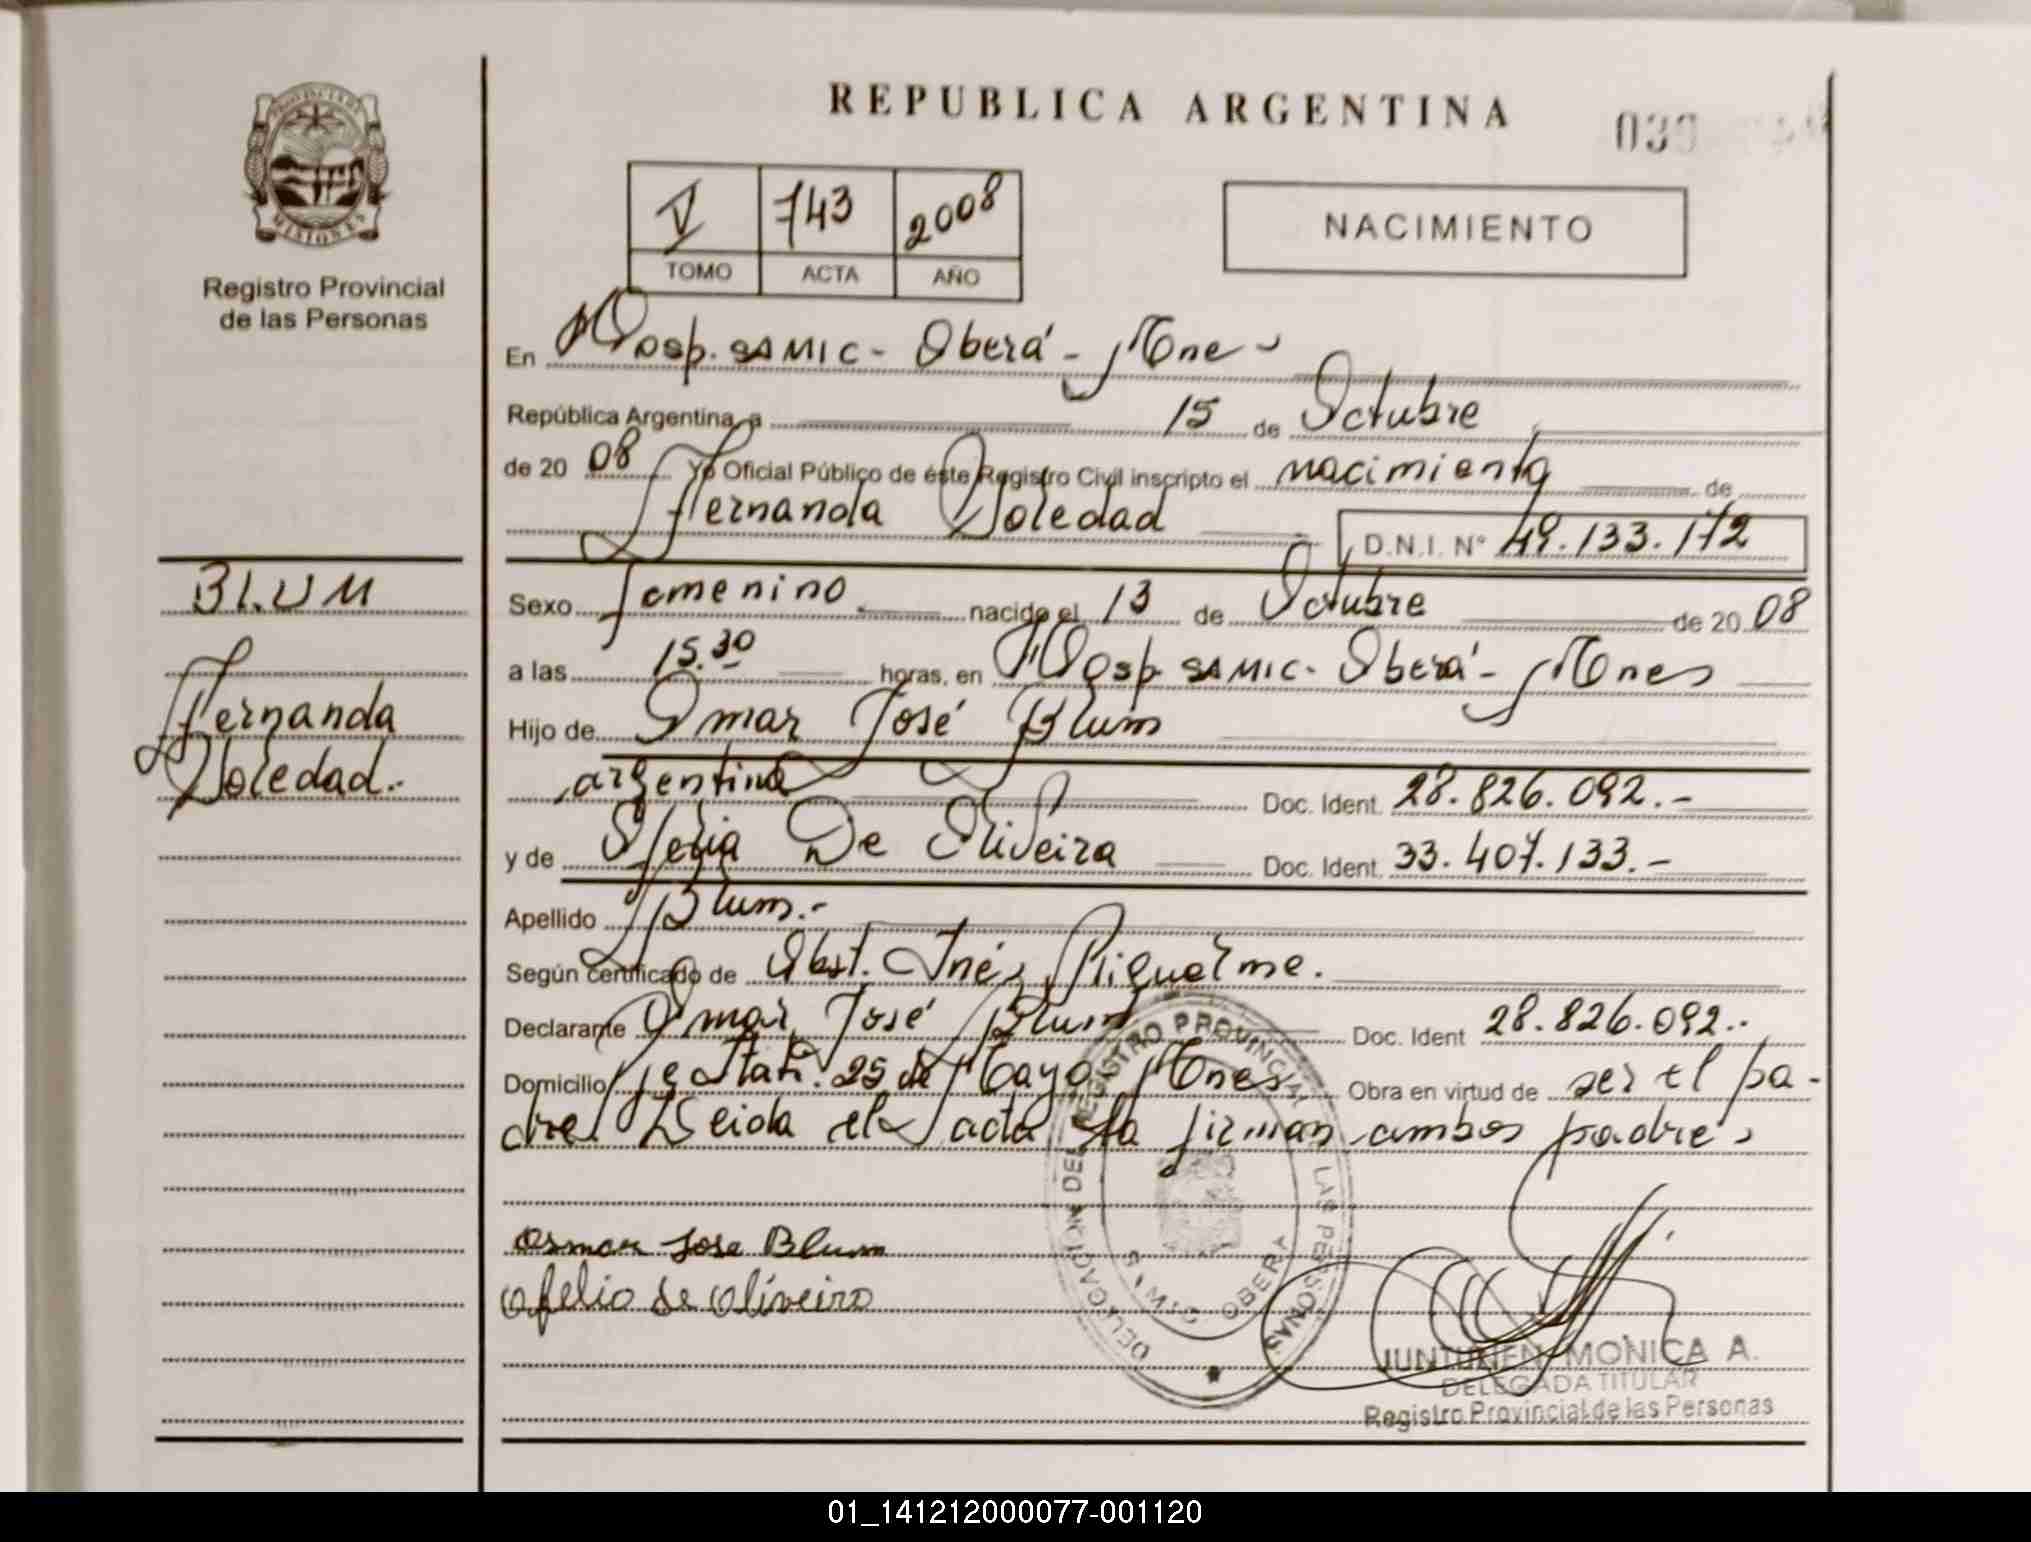 REPUBLICA ARGENTINA
PROVINCIA DE
MISIONES
Registro Provincial
de las Personas
V 743 2008
TOMO ACTA AÑO
NACIMIENTO
En Hosp. SAMIC - Oberá - Mnes
República Argentina, a 15 de Octubre
de 2008 Yo Oficial Público de éste Registro Civil inscripto el nacimiento de
Fernanda Soledad D.N.I. N° 49.133.172
BLUM
Fernanda
Soledad.-
Sexo femenino nacido el 13 de Octubre de 2008
a las 15.30 horas, en Hosp SAMIC - Oberá - Mnes
Hijo de Omar José Blum
argentina Doc. Ident. 28.826.092.-
y de De Oliveira Doc. Ident. 33.407.133.-
Apellido Blum.-
Según certificado de Obst. Inés Riquelme.
Declarante Omar José Blum Doc. Ident 28.826.092.-
Domicilio 25 de Mayo Mnes Obra en virtud de ser el pa-
dre Leida el acta la firman ambos padres
Osmar Jose Blum
Ofelia de Oliveira
DELEGACION DEL REGISTRO PROVINCIAL DE LAS PERSONAS
OBERA
JUNTUNEN MONICA A.
DELEGADA TITULAR
Registro Provincial de las Personas
01_141212000077-001120